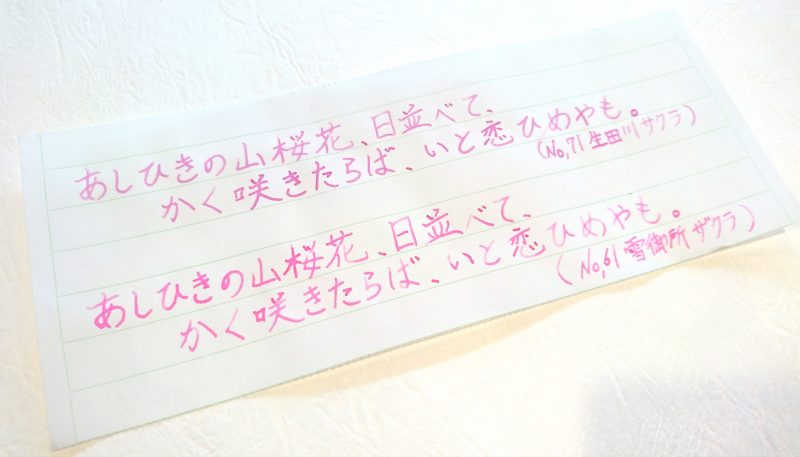 あしひきの山桜花、日並べて、
かく咲きたらば、いと恋ひめやも。
(No,71 生田川サクラ)
あしひきの山桜花、日並べて、
かく咲きたらば、いと恋ひめやも。
(No,61 雪御所ザクラ)